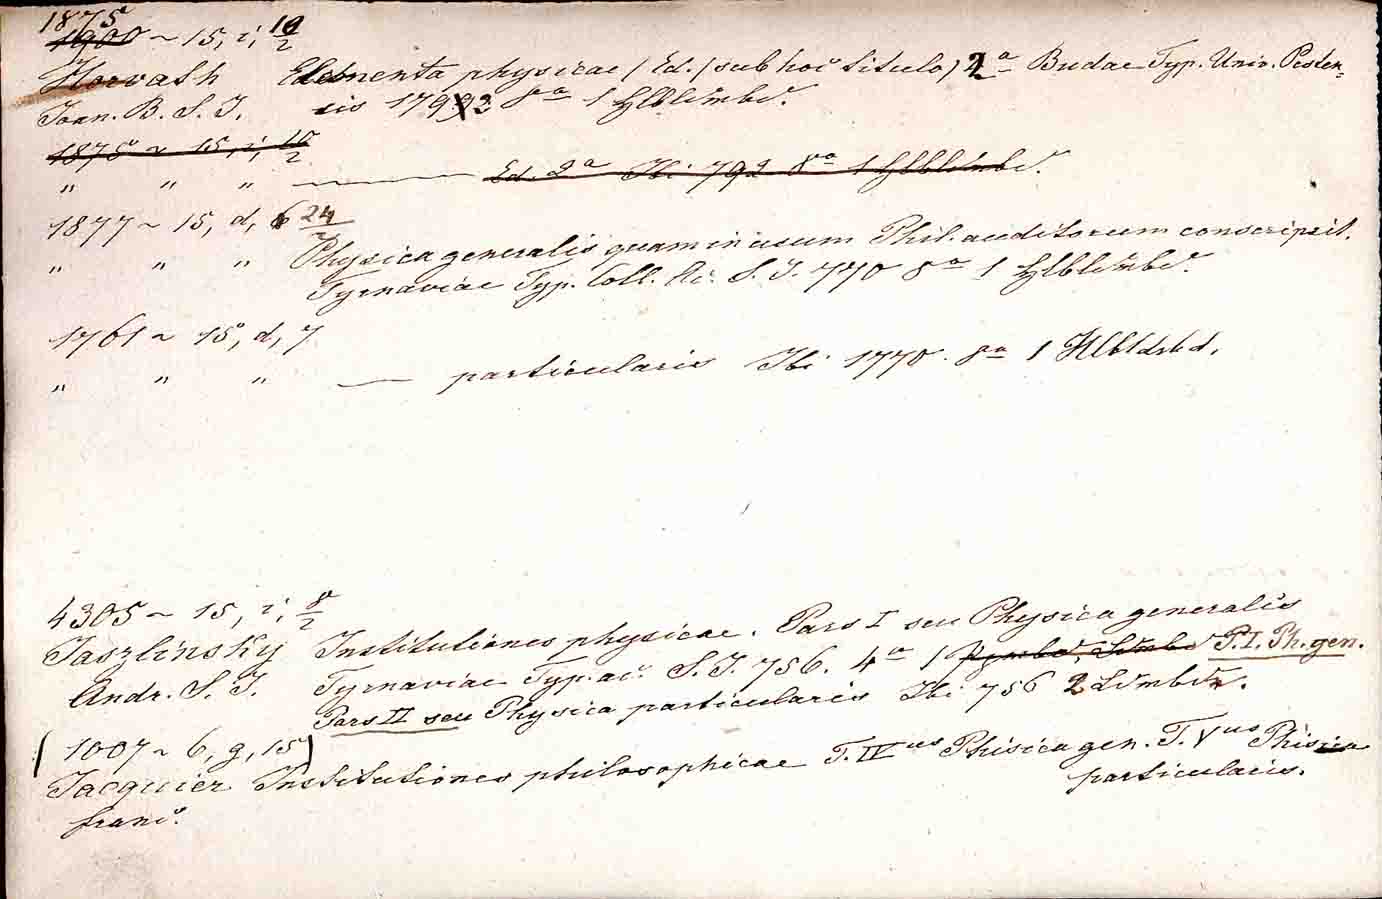 1875
1900 ~ 15, i, 10/2
Horvath Elementa physicae (Ed. (sub hoc titulo) 2a Budae Typ. Univ. Pesten-
Joan. B. S. J. sis 1793 8a 1 Hlbldrbd.
1875 ~ 15, i, 10/2
" " " Ed. 2a Ibi 792 8a 1
1877 ~ 15, d, 6 24/2
" " " Physica generalis quam in usum Phil. auditorum conscripsit.
Tyrnaviae Typ. Coll. Ac. S. J. 770 8a 1
1761 ~ 15, d, 7
" " " — particularis Ibi 1770. 8a 1 Hlbldrbd.
4305 ~ 15, i, 8/2
Jaszlinsky Institutiones physicae. Pars I seu Physica generalis
Andr. S. J. Tyrnaviae Typ. ac. S. J. 756. 4a 1 P. I. Ph. gen.
Pars II seu Physica particularis Ibi 756 2
(1007 ~ 6, g, 15)
Jacquier Institutiones philosophicae T. IVus Phisica gen. T. Vus Phisica
franc. particularis.